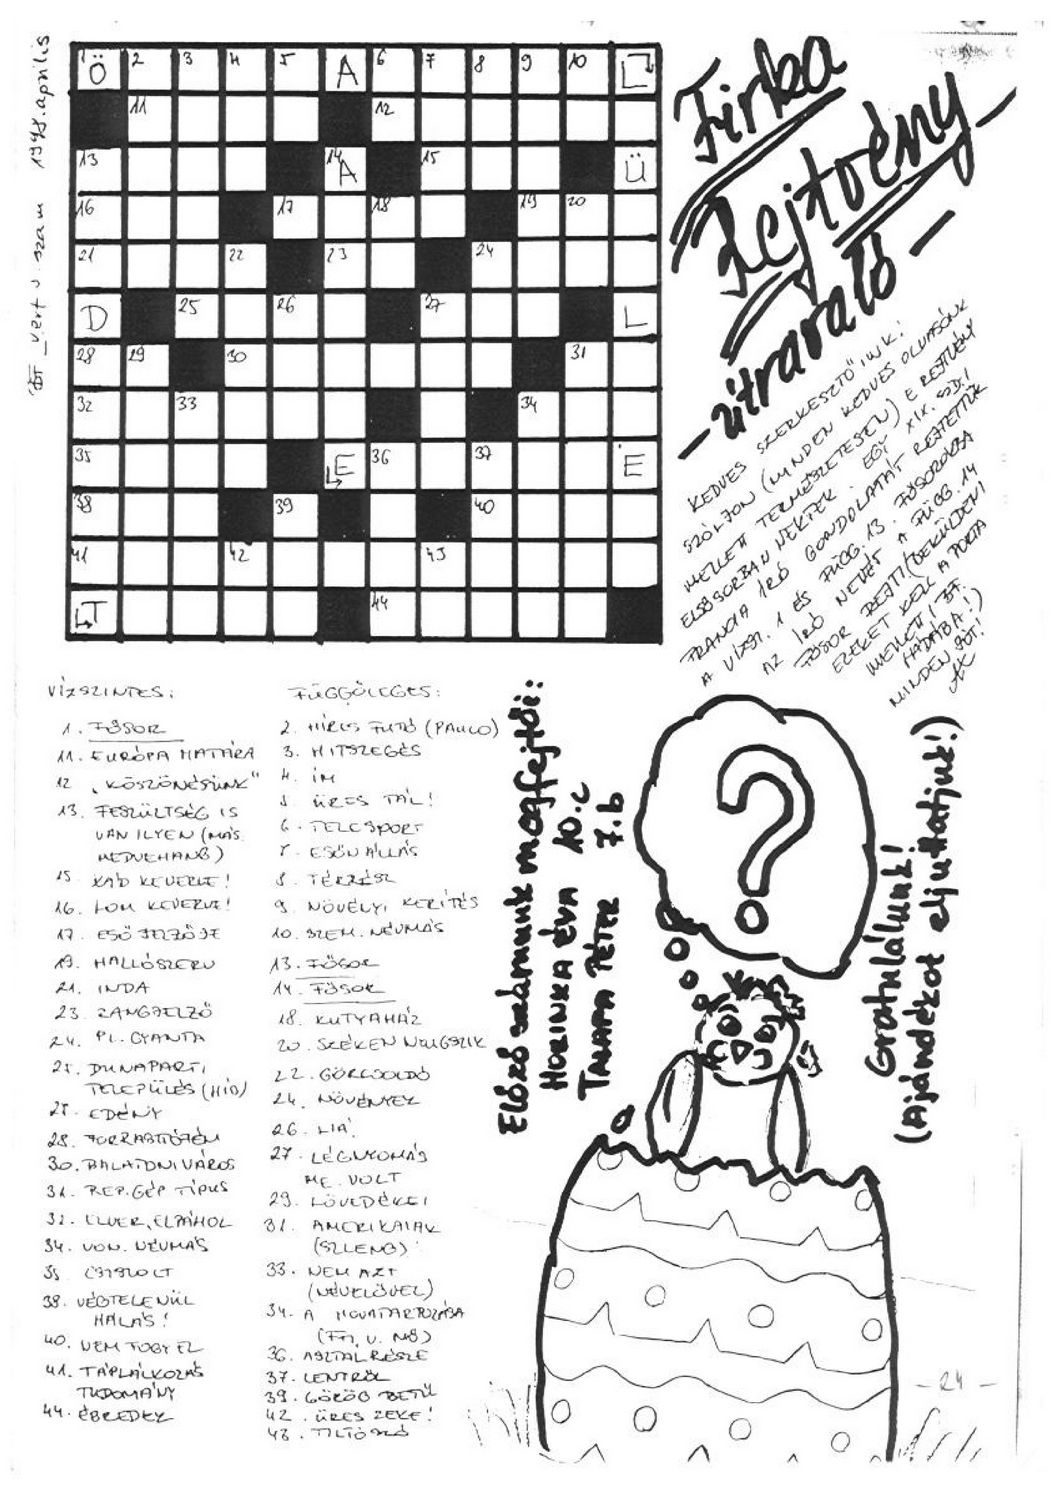 1998. április
Firka
Rejtvény
- útravaló -
KEDVES SZERKESZTŐINK!
SZÓLJON (MINDEN KEDVES OLVASÓNK
MELLETT TERMÉSZETESEN) E REJTVÉNY
ELSŐSORBAN NEKTEK. EGY XIX. SZD.I
FRANCIA ÍRÓ GONDOLATÁT REJTETTÜK
A VÍZSZ. 1 ÉS FÜGG. 13. FŐSOROKBA
AZ ÍRÓ NEVÉT A FÜGG. 14
FŐSOR REJTI (BEKÜLDENI
EZEKET KELL A PORTA
MELLETTI
MINDEN JÓT!
VÍZSZINTES:
1. FŐSOR
11. EURÓPA HATÁRA
12. „KÖSZÖNÉSÜNK"
13. FESZÜLTSÉG IS
VAN ILYEN (MÁS.
MEDVEHANG)
15. KÁD KEVERVE!
16. LOM KEVERVE!
17. ESŐ JELZŐJE
19. HALLÓSZERV
21. INDA
23. RANGJELZŐ
24. PL. GYANTA
25. DUNAPARTI
TELEPÜLÉS (HÍD)
27. EDÉNY
28. FORRASZTÓFÉM
30. BALATONI VÁROS
31. REP.GÉP TÍPUS
32. ELVER, ELPÁHOL
34. VON. NÉVMÁS
35. CSISZOLT
38. VÉGTELENÜL
HÁLÁS!
40. NEM FOGY EL
41. TÁPLÁLKOZÁS
TUDOMÁNY
44. ÉBREDEK
FÜGGŐLEGES:
2. HÍRES FUTÓ (PAAVO)
3. HITSZEGÉS
4. ÍM
5. ÜRES TÁL!
6. TELESPORT
7. ESŐN ÁLLÁS
8. TÉRRÉSZ
9. NÖVÉNYI KERÍTÉS
10. SZEM. NÉVMÁS
13. FŐSOR
14. FŐSOR
18. KUTYAHÁZ
20. SZÉKEN NYUGSZIK
22. GÖRCSOLDÓ
24. NÖVÉNYEK
26. LIA!
27. LÉGNYOMÁS
ME. VOLT
29. LÖVEDÉKEI
31. AMERIKAIAK
(SZLENG)
33. NEM AZT
(NÉVELŐVEL)
34. A HOVATARTOZÁSA
(FFI V. NŐ)
36. ASZTAL RÉSZE
37. LENTRŐL
39. GÖRÖG BETŰ
42. ÜRES ZEKE!
43. TILTÓSZÓ
Előző számunk megfejtői:
HORINKA ÉVA 10.c
PÉTER 7.b
Gratulálunk!
(Ajándékot eljuttatjuk!)
- 24 -